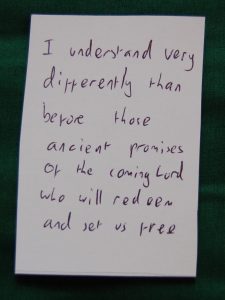 I understand very
differently than
before those
ancient promises
of the coming Lord
who will redeem
and set us free